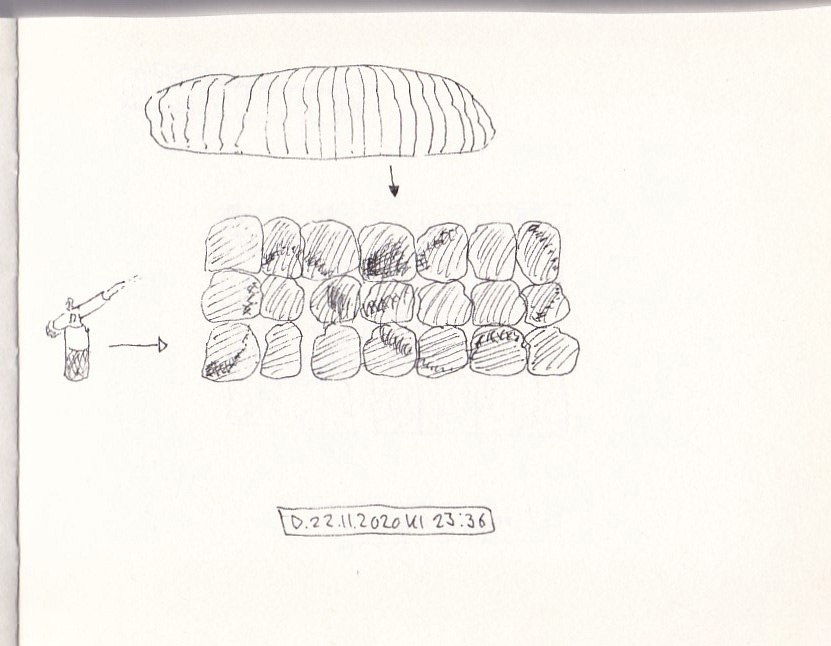 D.22.11.2020 Kl 23:36